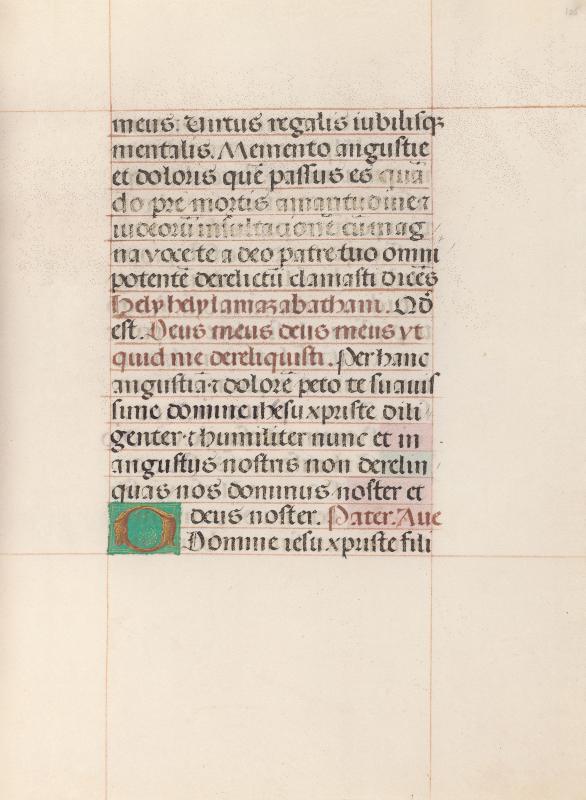 meus. Virtus regalis iubilusq3
mentalis. Memento angustie
et doloris quē passus es quā
do pre mortis amaritudine ⁊
iudeorū insultacionē cū mag
na voce te a deo patre tuo omni
potentē derelictū clamasti dicēs
Hely hely lamazabathani. Qd̄
est. Deus meus deus meus vt
quid me dereliquisti. Per hanc
angustiā ⁊ dolorē peto te suauis
sime domine ihesu xpriste dili
genter ⁊ humiliter nunc et in
angustiis nostris non derelin
quas nos dominus noster et
deus noster. Pater. Aue
O Domine iesu xpriste fili